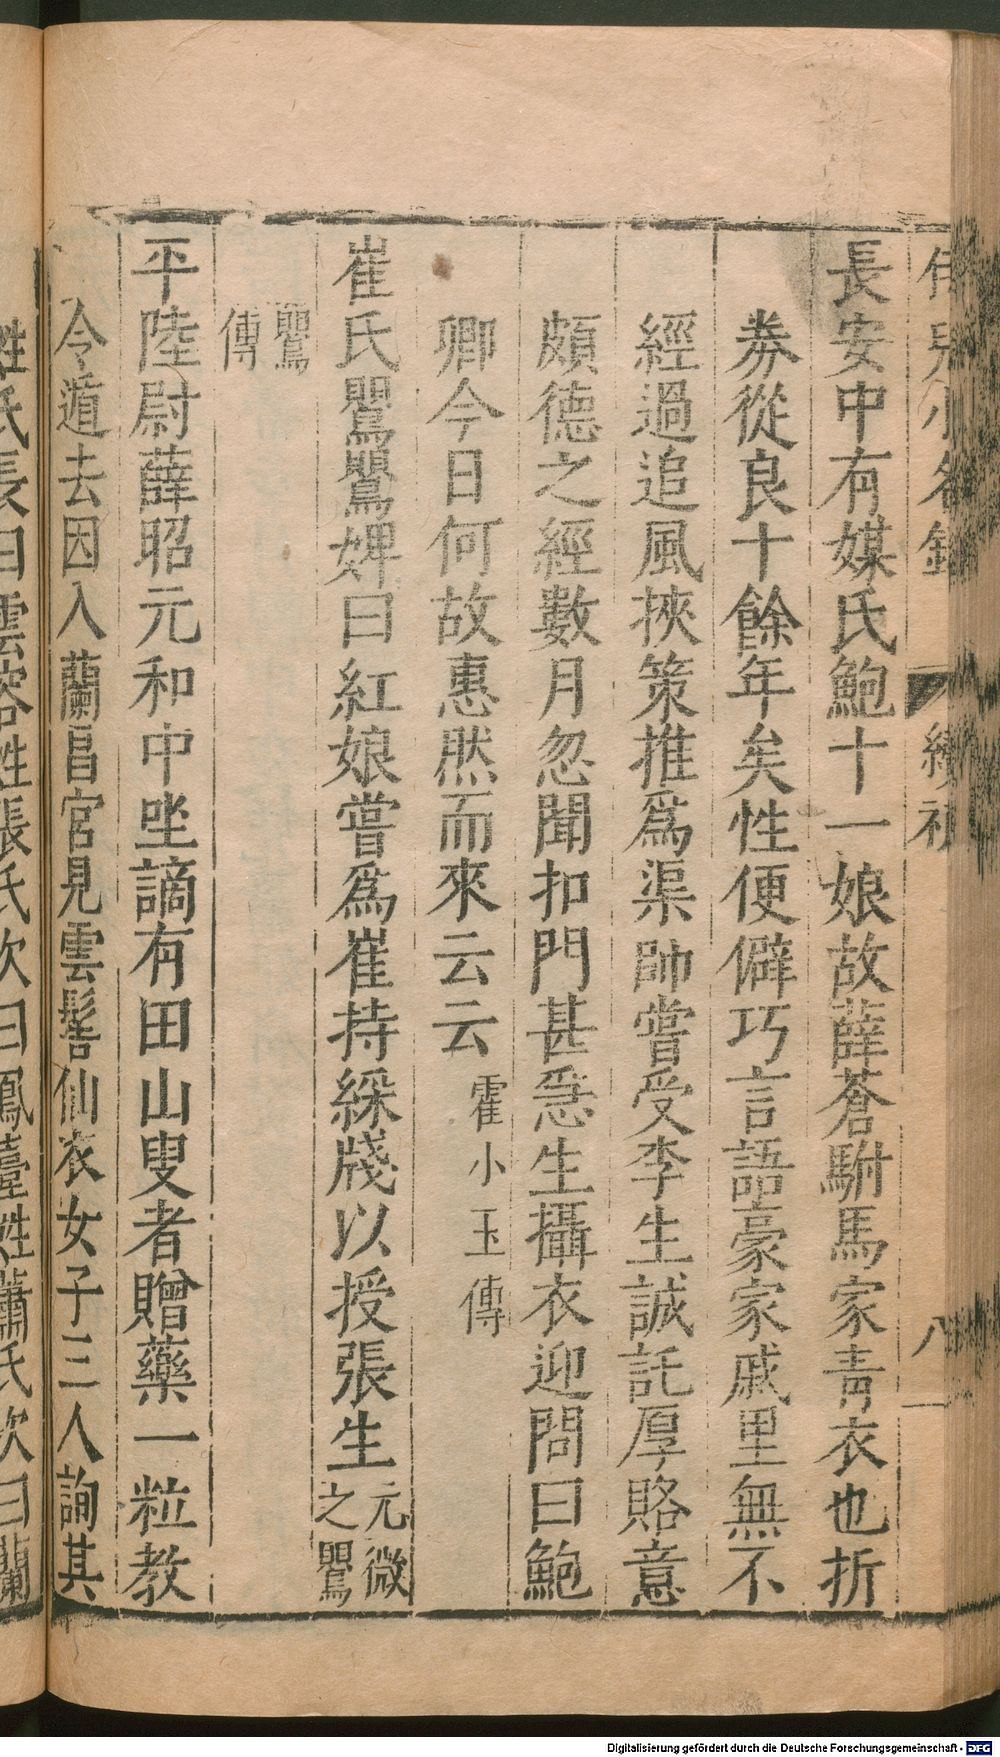 長安中有媒氏鮑十一娘故薛蒼駙馬家青衣也折
券從良十餘年矣性便僻巧言語豪家戚里無不
經過追風挾策推爲渠帥嘗受李生誠託厚賂意
頗德之經數月忽聞扣門甚急生攝衣迎問曰鮑
卿今日何故惠然而來云云霍小玉傳
崔氏鸎鸎婢曰紅娘嘗爲崔持綵牋以授張生元微之鸎
鸎傳
平陸尉薛昭元和中坐謫有田山叟者贈藥一粒教
令遁去因入蘭昌宮見雲髻仙衣女子三人詢其
姓氏長曰雲容姓張氏次曰鳳臺姓蕭氏次曰蘭
Digitalisierung gefördert durch die Deutsche Forschungsgemeinschaft - DFG